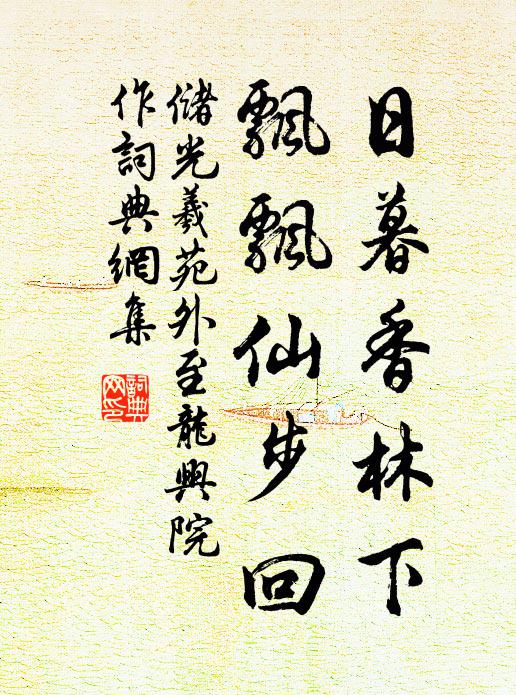 日暮香林下
飄飄仙步回
儲光羲苑外至龍興院
作詞典網集
詞典
网印